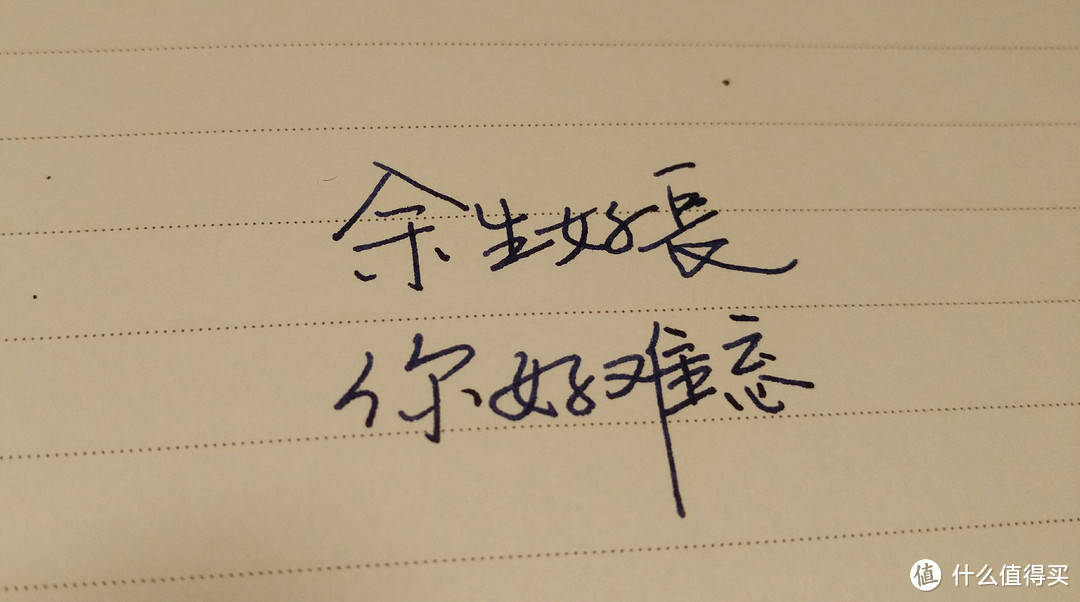 余生好長
你好难忘
值 什么值得买